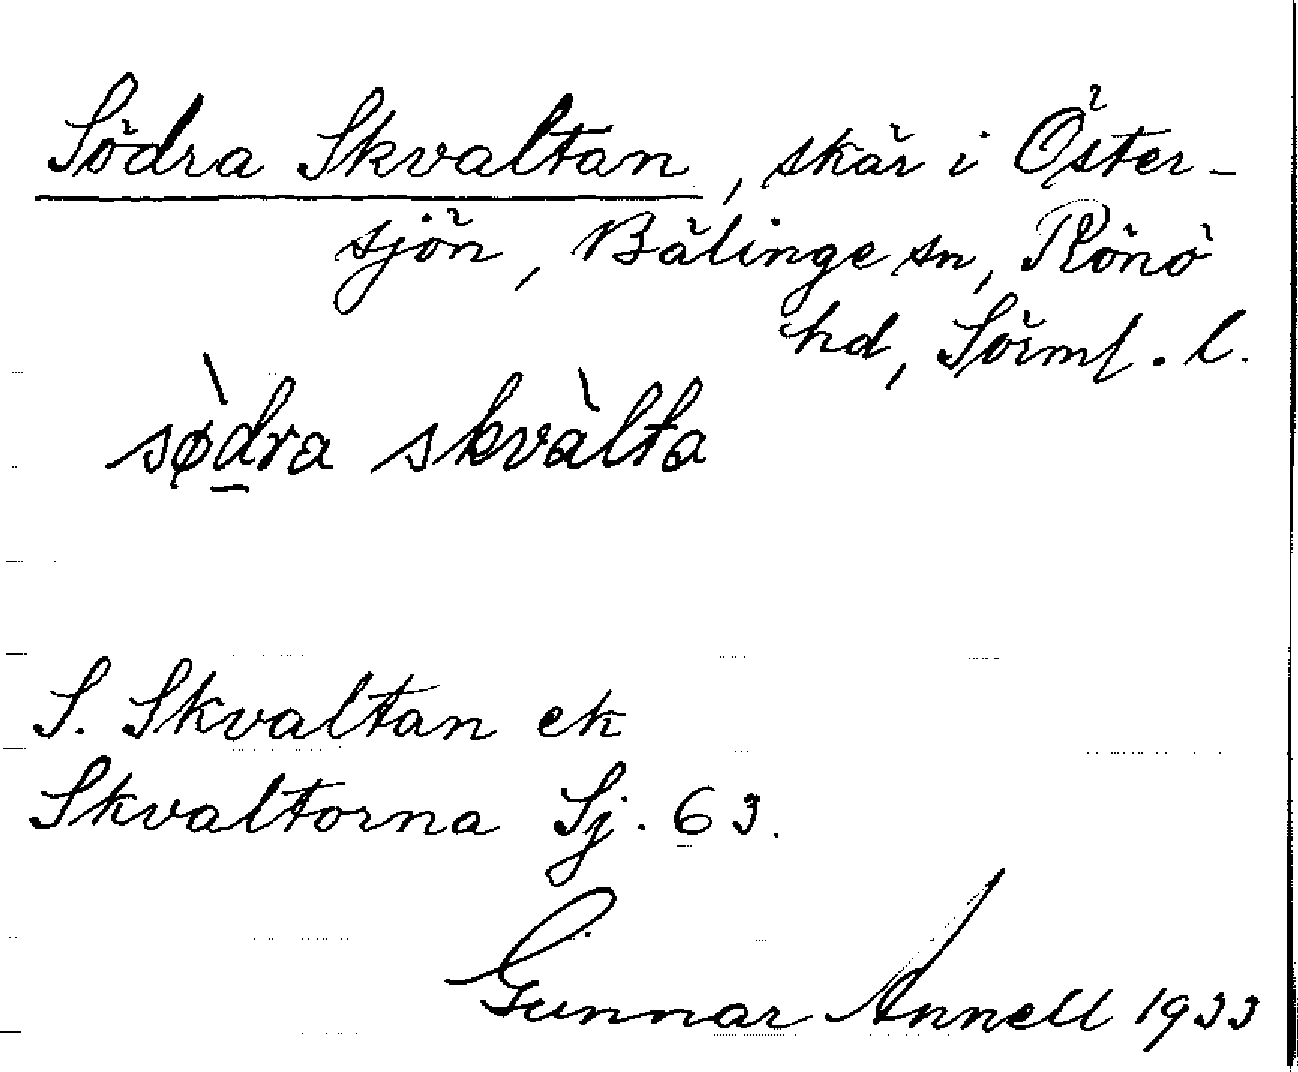 Södra Skvaltan, skär i Öster-
sjön, Bälinge sn, Rönö
hd, Sörml. l.
sø̀d̲ra skvàlta
S. Skvaltan ek
Skvaltorna Sj. 63.
Gunnar Annell 1933